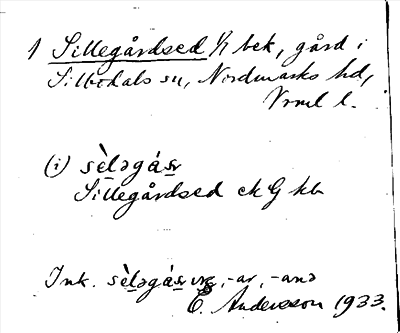 1 Sillegårdsed 1/1 bek, gård i
Silbodals sn, Nordmarks hd,
Vrml l.
(i) sèləgásr
Sillegårdsed ek G kb
Ink. sèləgásr -ar, -anə
E. Andersson 1933.